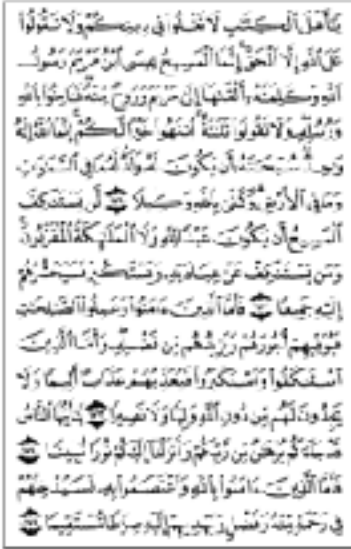 يَٰٓأَهۡلَ ٱلۡكِتَٰبِ لَا تَغۡلُوا۟ فِى دِينِكُمۡ وَلَا تَقُولُوا۟
عَلَى ٱللَّهِ إِلَّا ٱلۡحَقَّ إِنَّمَا ٱلۡمَسِيحُ عِيسَى ٱبۡنُ مَرۡيَمَ رَسُولُ
ٱللَّهِ وَكَلِمَتُهُۥٓ أَلۡقَىٰهَآ إِلَىٰ مَرۡيَمَ وَرُوحٌ مِّنۡهُ فَـَٔامِنُوا۟ بِٱللَّهِ
وَرُسُلِهِۦ وَلَا تَقُولُوا۟ ثَلَٰثَةٌ ٱنتَهُوا۟ خَيۡرًا لَّكُمۡ إِنَّمَا ٱللَّهُ إِلَٰهٌ
وَٰحِدٌ سُبۡحَٰنَهُۥٓ أَن يَكُونَ لَهُۥ وَلَدٌ لَّهُۥ مَا فِى ٱلسَّمَٰوَٰتِ
وَمَا فِى ٱلۡأَرۡضِ وَكَفَىٰ بِٱللَّهِ وَكِيلًا ١٧١ لَّن يَسۡتَنكِفَ
ٱلۡمَسِيحُ أَن يَكُونَ عَبۡدًا لِّلَّهِ وَلَا ٱلۡمَلَٰٓئِكَةُ ٱلۡمُقَرَّبُونَ
وَمَن يَسۡتَنكِفۡ عَنۡ عِبَادَتِهِۦ وَيَسۡتَكۡبِرۡ فَسَيَحۡشُرُهُمۡ
إِلَيۡهِ جَمِيعًا ١٧٢ فَأَمَّا ٱلَّذِينَ ءَامَنُوا۟ وَعَمِلُوا۟ ٱلصَّٰلِحَٰتِ
فَيُوَفِّيهِمۡ أُجُورَهُمۡ وَيَزِيدُهُم مِّن فَضۡلِهِۦ وَأَمَّا ٱلَّذِينَ
ٱسۡتَنكَفُوا۟ وَٱسۡتَكۡبَرُوا۟ فَيُعَذِّبُهُمۡ عَذَابًا أَلِيمًا وَلَا
يَجِدُونَ لَهُم مِّن دُونِ ٱللَّهِ وَلِيًّا وَلَا نَصِيرًا ١٧٣ يَٰٓأَيُّهَا ٱلنَّاسُ
قَدۡ جَآءَكُم بُرۡهَٰنٌ مِّن رَّبِّكُمۡ وَأَنزَلۡنَآ إِلَيۡكُمۡ نُورًا مُّبِينًا ١٧٤
فَأَمَّا ٱلَّذِينَ ءَامَنُوا۟ بِٱللَّهِ وَٱعۡتَصَمُوا۟ بِهِۦ فَسَيُدۡخِلُهُمۡ
فِى رَحۡمَةٍ مِّنۡهُ وَفَضۡلٍ وَيَهۡدِيهِمۡ إِلَيۡهِ صِرَٰطًا مُّسۡتَقِيمًا ١٧٥